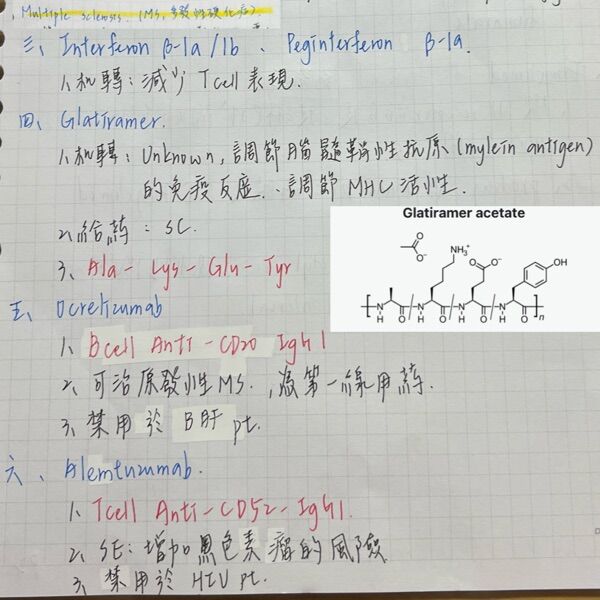 Multiple sclerosis. (MS, 多發性硬化症)
三、Interferon β-1a/1b、Peginterferon β-1a.
1、机轉:減少 T cell 表現.
四、Glatiramer.
1、机轉:Unknown,調節腦髓鞘性抗原(mylein antigen)
的免疫反应、調節 MHC 活性.
2、給葯:SC.
3、Ala-Lys-Glu-Tyr
Glatiramer acetate
O
O⁻
NH₃⁺
O O⁻
OH
[N H O N H O N H O N H O]n
五、Ocrelizumab
1、Bcell Anti-CD20 IgG1
2、可治原發性MS.,為第一線用葯.
3、禁用於 B肝 pt.
六、Alemtuzumab.
1、Tcell Anti-CD52-IgG1.
2、SE:增加黑色素瘤的風險
3、禁用於 HIV pt.